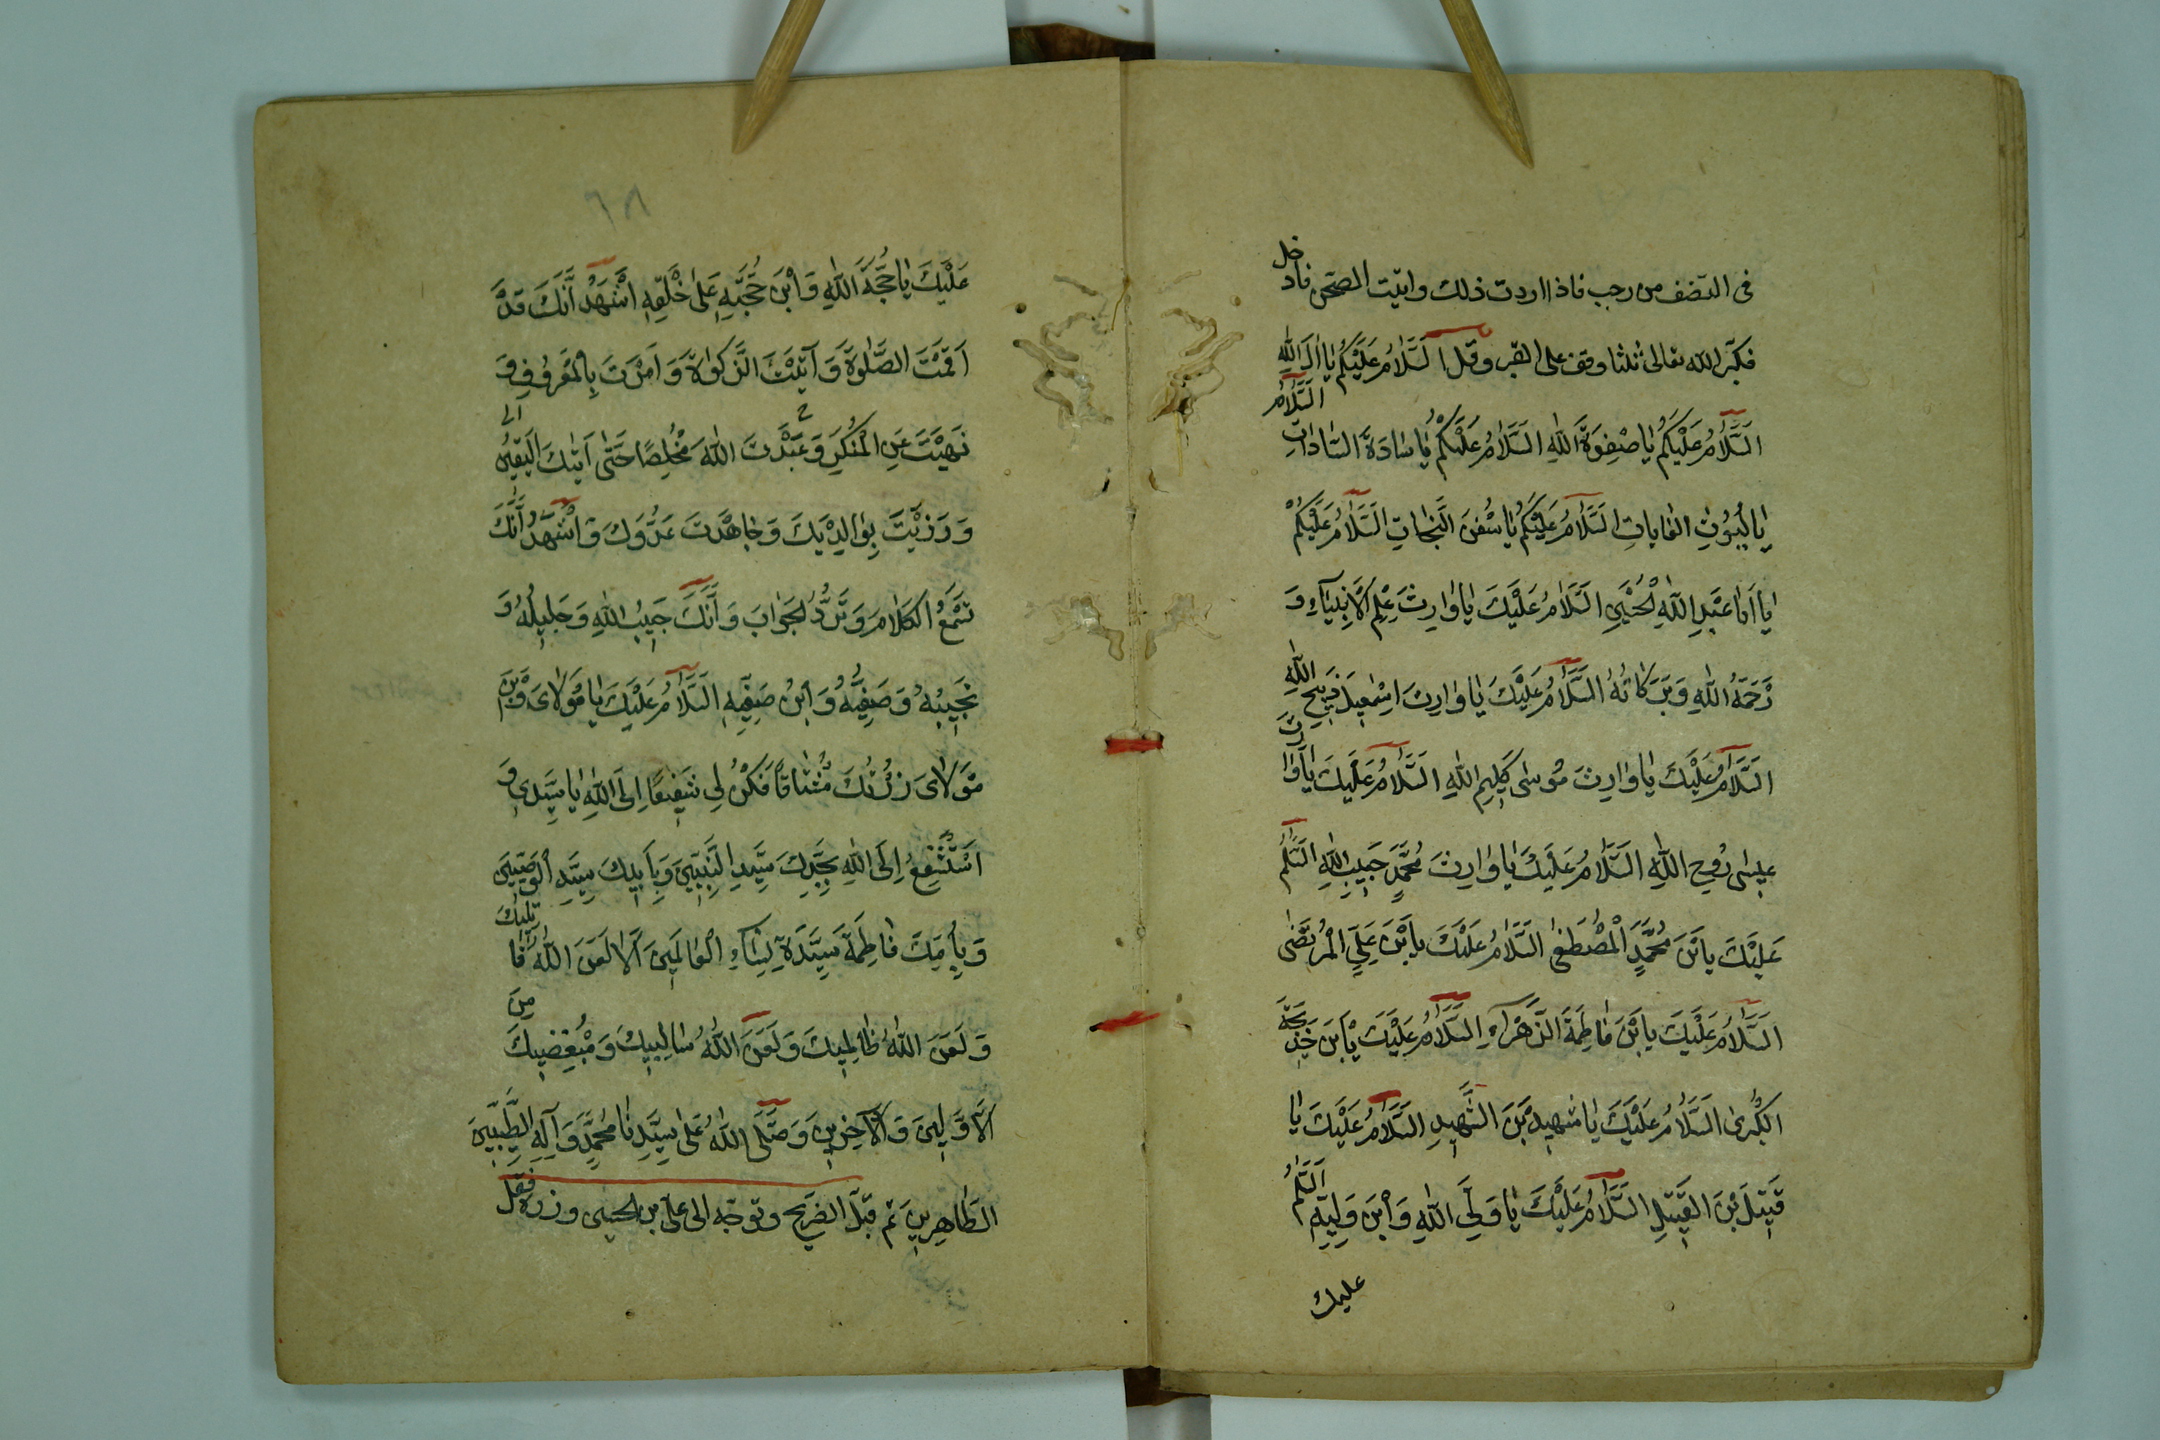 فى النصف من رجب فاذا اردت ذلك واتيت الصحن فادخل
فكبّر الله تعالى ثلثا وقف على القبر وقل اَلسَّلَامُ عَلَيْكُمْ يَا اٰلَ اللهِ
اَلسَّلَامُ عَلَيْكُمْ يَا صَفْوَةَ اللهِ اَلسَّلَامُ عَلَيْكُمْ يَا سَادَةَ السَّادَاتِ اَلسَّلَامُ
يَا لُيُوثَ الغَابَاتِ اَلسَّلَامُ عَلَيْكُمْ يَا سُفُنَ النَّجَاتِ اَلسَّلَامُ عَلَيْكُمْ
يَا اَبَا عَبْدِ اللهِ الْحُسَيْنِ اَلسَّلَامُ عَلَيْكَ يَا وَارِثَ عِلْمِ الْاَنْبِيَاءِ وَ
رَحْمَةُ اللهِ وَبَرَكَاتُهُ اَلسَّلَامُ عَلَيْكَ يَا وَارِثَ اِسْمٰعِيلَ ذَبِيحِ اللهِ
اَلسَّلَامُ عَلَيْكَ يَا وَارِثَ مُوسٰى كَلِيمِ اللهِ اَلسَّلَامُ عَلَيْكَ يَا وَارِثَ
عِيسٰى رُوحِ اللهِ اَلسَّلَامُ عَلَيْكَ يَا وَارِثَ مُحَمَّدٍ حَبِيبِ اللهِ اَلسَّلٰمُ
عَلَيْكَ يَابْنَ مُحَمَّدٍ الْمُصْطَفٰى اَلسَّلَامُ عَلَيْكَ يَابْنَ عَلِيٍّ الْمُرْتَضٰى
اَلسَّلَامُ عَلَيْكَ يَابْنَ فَاطِمَةَ الزَّهْرَآءِ اَلسَّلَامُ عَلَيْكَ يَابْنَ خَدِيجَةَ
الْكُبْرٰى اَلسَّلَامُ عَلَيْكَ يَا شَهِيدُ بْنَ الشَّهِيدِ اَلسَّلَامُ عَلَيْكَ يَا
قَتِيلُ بْنَ القَتِيلِ اَلسَّلَامُ عَلَيْكَ يَا وَلِيَّ اللهِ وَابْنَ وَلِيِّهِ اَلسَّلٰمُ
عليك
٦٨
عَلَيْكَ يَا حُجَّةَ اللهِ وَابْنَ حُجَّتِهِ عَلٰى خَلْقِهِ اَشْهَدُ اَنَّكَ قَدْ
اَقَمْتَ الصَّلٰوةَ وَآتَيْتَ الزَّكٰوةَ وَاَمَرْتَ بِالْمَعْرُوفِ وَ
نَهَيْتَ عَنِ الْمُنْكَرِ وَعَبَدْتَ اللهَ مُخْلِصًا حَتّٰى اَتٰيكَ الْيَقِينُ
وَرَزَيْتَ بِوَالِدَيْكَ وَجَاهَدْتَ عَدُوَّكَ وَاَشْهَدُ اَنَّكَ
تَسْمَعُ الْكَلَامَ وَتَرُدُّ الْجَوَابَ وَاَنَّكَ حَبِيبُ اللهِ وَخَلِيلُهُ وَ
نَجِيبُهُ وَصَفِيُّهُ وَابْنُ صَفِيِّهِ اَلسَّلَامُ عَلَيْكَ يَا مَوْلَاىَ وَبْنَ
مَوْلَاىَ زُرْتُكَ مُشْتَاقًا فَكُنْ لِي شَفِيعًا اِلَى اللهِ يَا سَيِّدِي وَ
اَسْتَشْفِعُ اِلَى اللهِ بِجَدِّكَ سَيِّدِ النَّبِيِّينَ وَبِاَبِيكَ سَيِّدِ الْوَصِيِّينَ
وَبِاُمِّكَ فَاطِمَةَ سَيِّدَةِ نِسَاءِ الْعَالَمِينَ اَلَا لَعَنَ اللهُ قَاتِلِيكَ
وَلَعَنَ اللهُ ظَالِمِيكَ وَلَعَنَ اللهُ سَالِبِيكَ وَمُبْغِضِيكَ مِنَ
الْاَوَّلِينَ وَالْآخِرِينَ وَصَلَّى اللهُ عَلٰى سَيِّدِنَا مُحَمَّدٍ وَآلِهِ الطَّيِّبِينَ
الطَّاهِرِينَ ثم قبّل الضريح وتوجّه الى علىّ بن الحسين وزره فقل